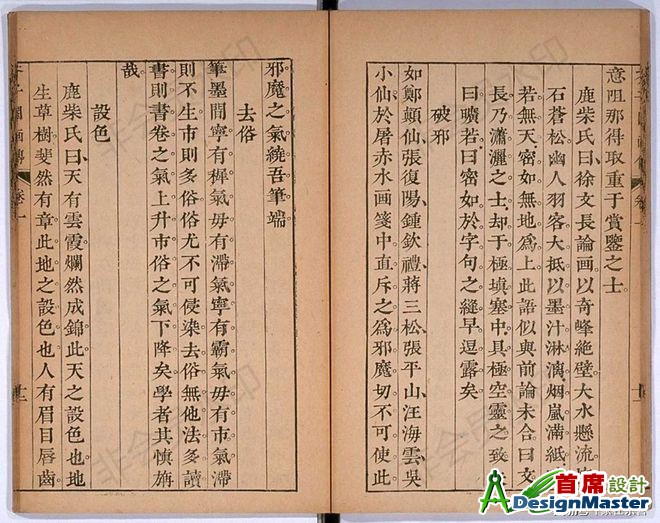 意阻那得取重于賞鑒之士
鹿柴氏曰徐文長論画以奇峰絶壁大水懸流
石蒼松幽人羽客大抵以墨汁淋漓烟嵐滿紙
若無天密如無地爲上此語似與前論未合曰文
長乃瀟灑之士却于極塡塞中具極空靈之致
曰曠若曰密如於字句之縫早逗露矣
破邪
如鄭顚仙張復陽鍾欽禮蔣三松張平山汪海雲吳
小仙於屠赤水画箋中直斥之爲邪魔切不可使此
邪魔之氣繞吾筆端
去俗
筆墨間寧有穉氣毋有滯氣寧有霸氣毋有市氣滯
則不生市則多俗俗尤不可侵染去俗無他法多讀
書則書卷之氣上升市俗之氣下降矣學者其愼旃
哉
設色
鹿柴氏曰天有雲霞爛然成錦此天之設色也地
生草樹斐然有章此地之設色也人有眉目唇齒
卷一
非会员水印
首席設計
ADesignMaster